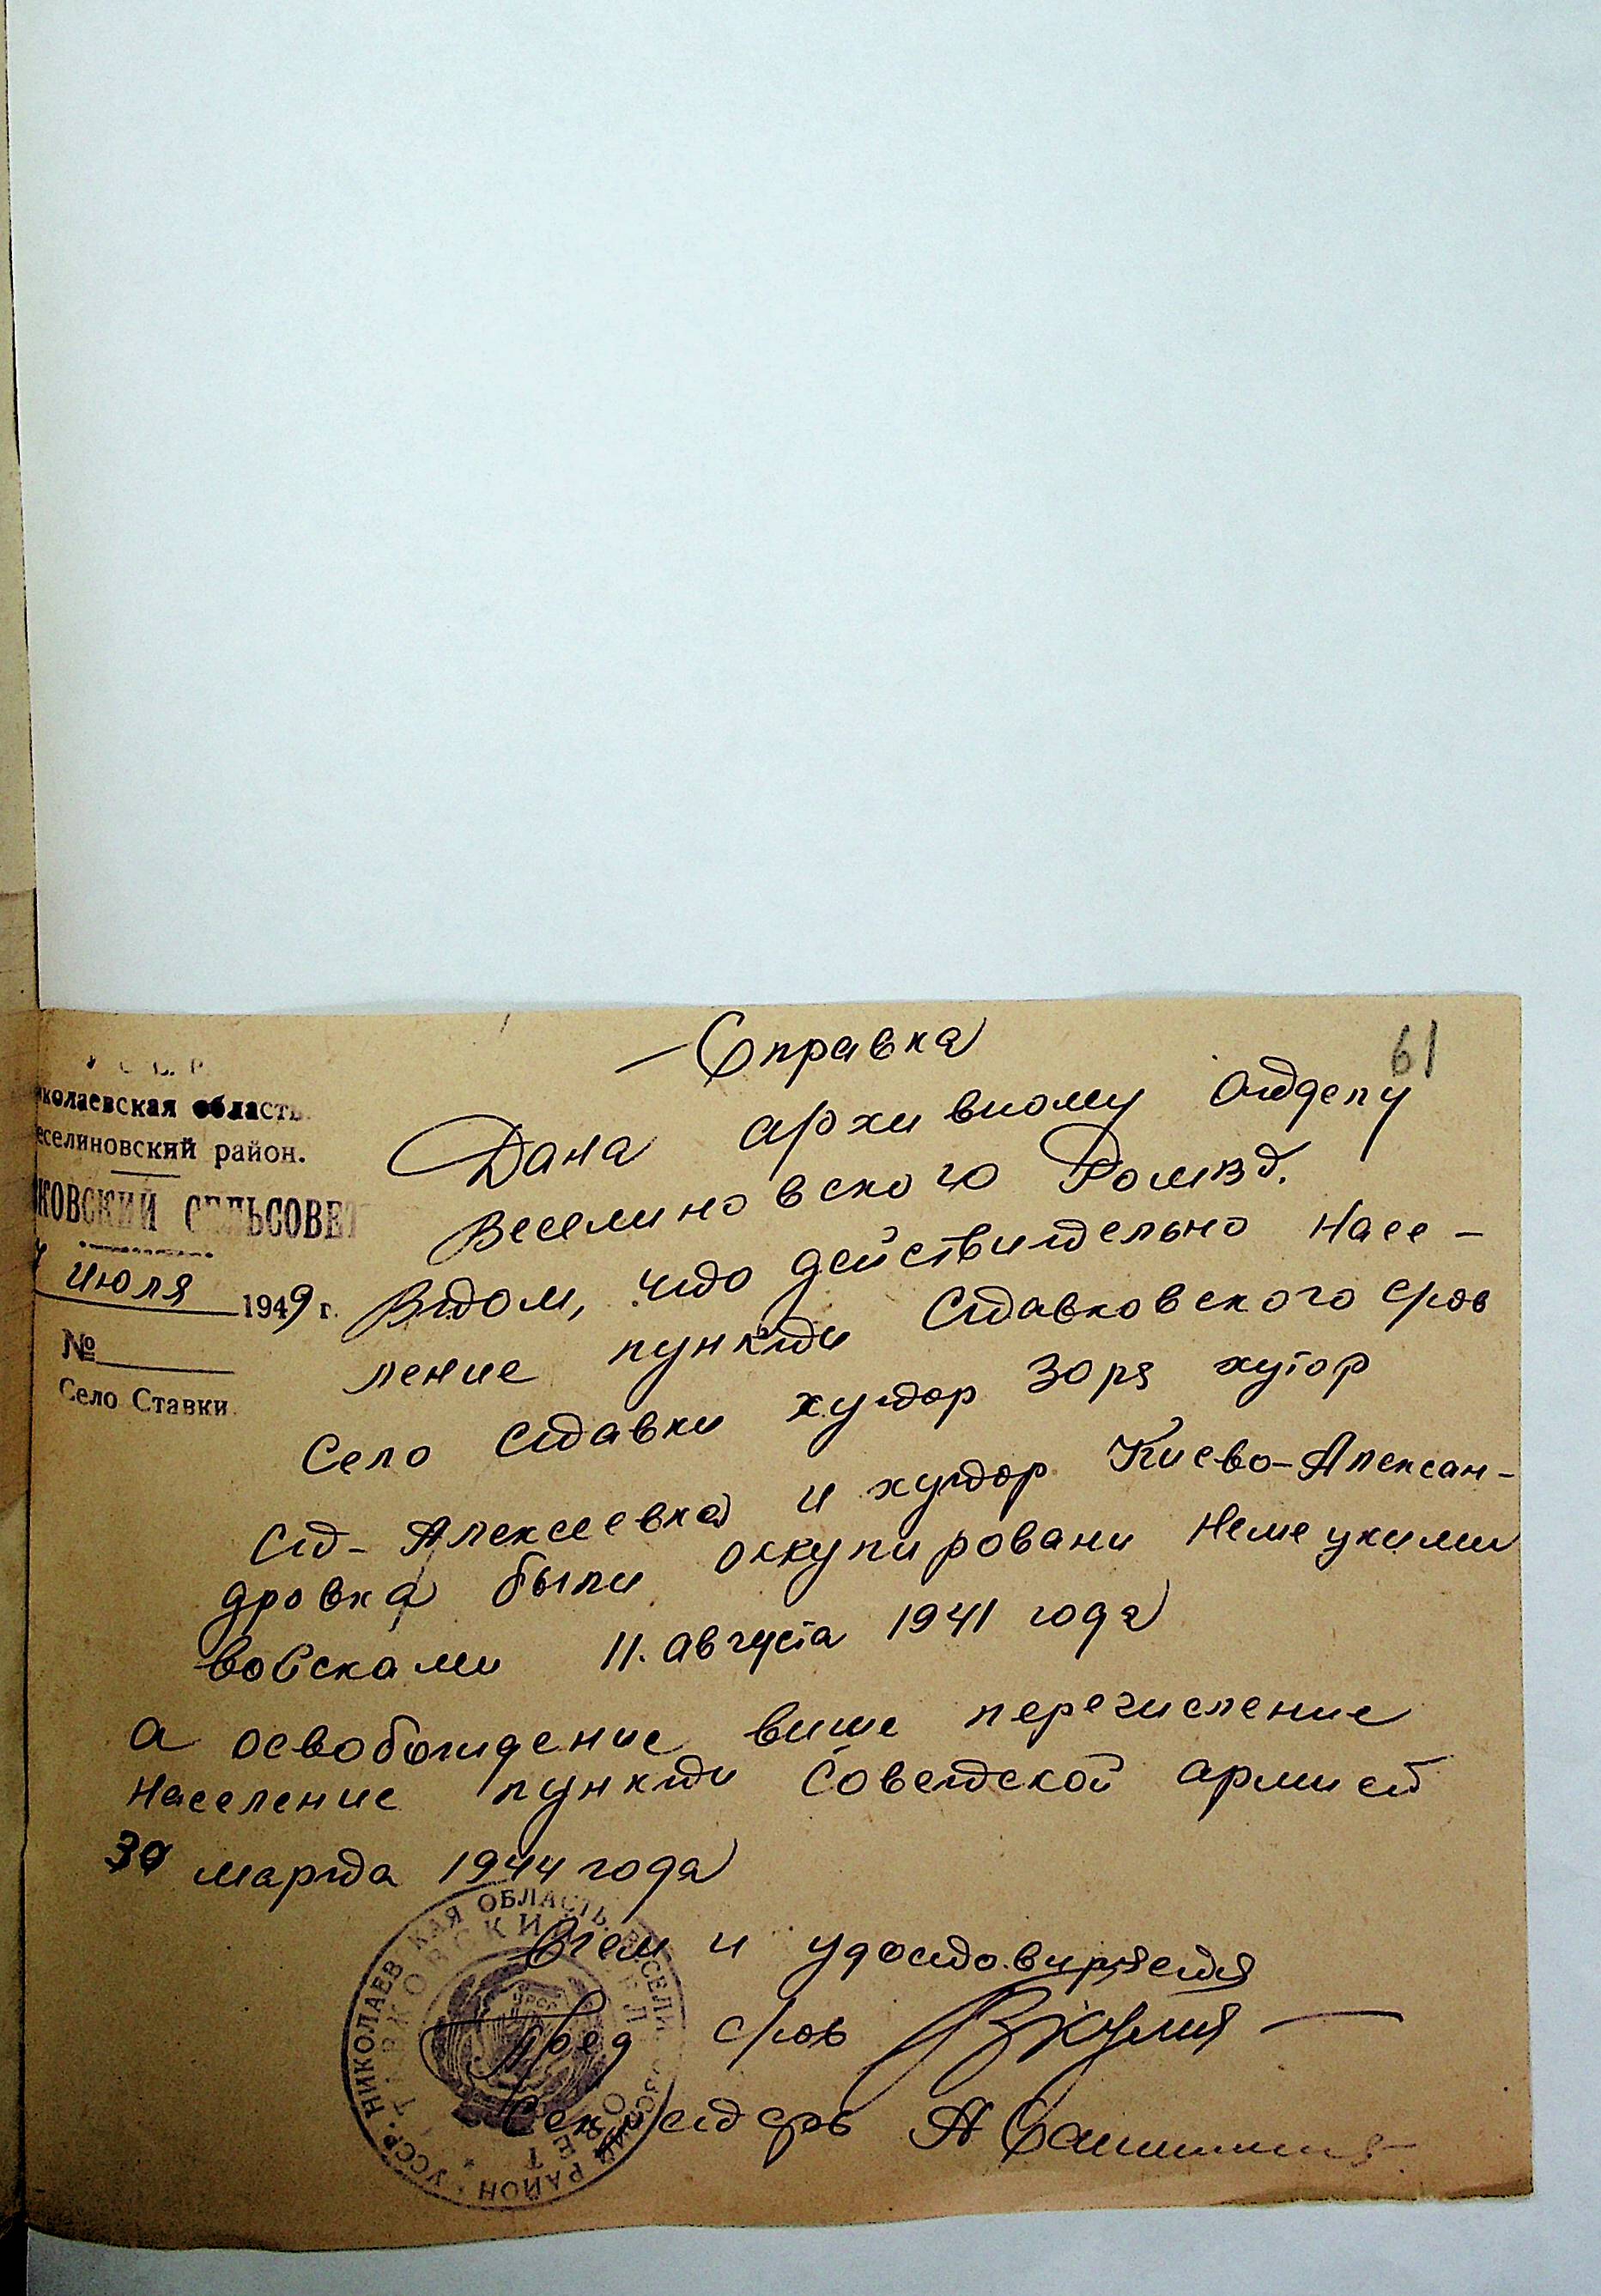 61
Справка
иколаевская область
еселиновский район.
КОВСКИЙ СЕЛЬСОВЕТ
июля 1949 г.
№
Село Ставки
Дана архивному отделу
Веселиновского Ромвд.
Втом, что действительно насе-
ление пункти Ставковского с/сов
Село Ставки хутор Зоря хутор
Ст-Алексеевка и хутор Киево-Алексан-
дровка были оккупировани немецкими
войсками 11. августа 1941 года
а освобождение више перечисление
население пункти Советской армией
30 марта 1944 года
Вчем и удостовиряется
Пред с/сов
Секретарь
НИКОЛАЕВСКАЯ ОБЛАСТЬ, ВЕСЕЛИНОВСКИЙ РАЙОН УССР